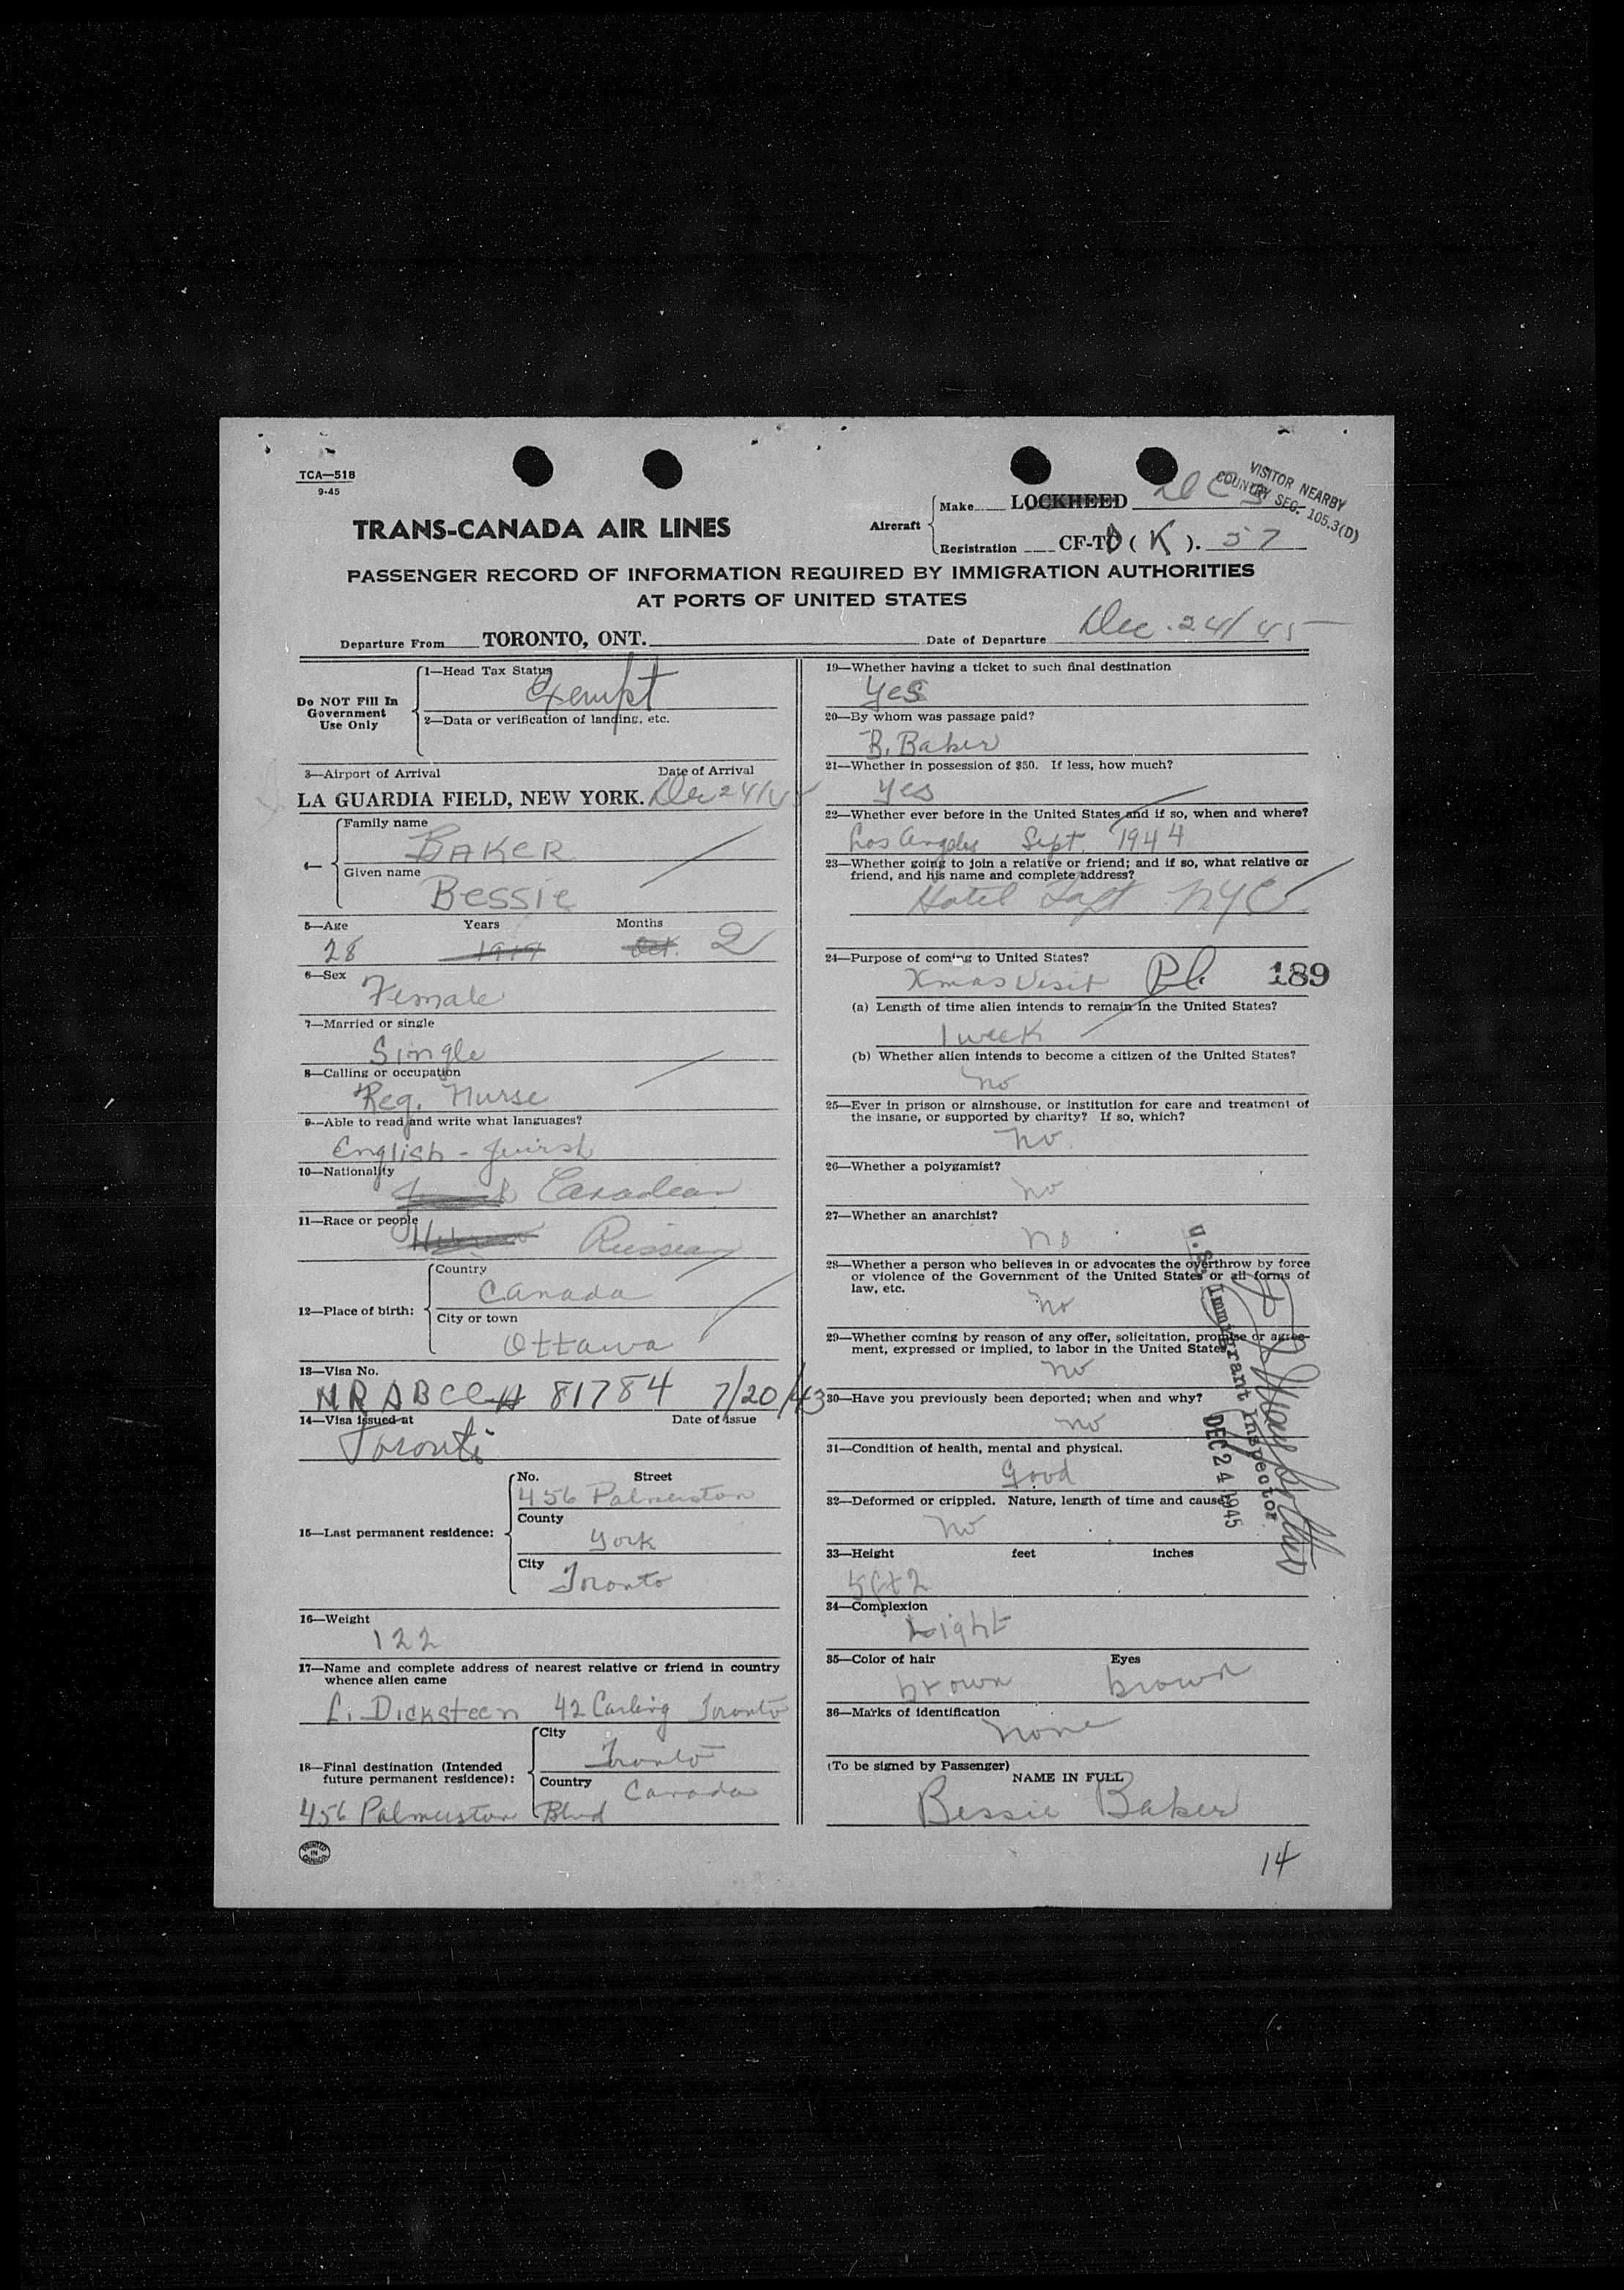 TCA—518
9-45
VISITOR NEARBY
COUNTRY SEC. 105.3(D)
TRANS-CANADA AIR LINES
Aircraft
Make LOCKHEED DC3
Registration CF-T ( K ). 57
PASSENGER RECORD OF INFORMATION REQUIRED BY IMMIGRATION AUTHORITIES
AT PORTS OF UNITED STATES
Departure From TORONTO, ONT. Date of Departure Dec. 24/45
Do NOT Fill In
Government
Use Only
1—Head Tax Status
Exempt
2—Data or verification of landing, etc.
3—Airport of Arrival Date of Arrival
LA GUARDIA FIELD, NEW YORK. Dec 24/45
4—
Family name
BAKER
Given name
Bessie
5—Age Years Months
28 1917 Oct. 2
6—Sex
Female
7—Married or single
Single
8—Calling or occupation
Reg. Nurse
9—Able to read and write what languages?
English - Juirsh
10—Nationality
Canadian
11—Race or people
Hebrew Russian
12—Place of birth:
Country
Canada
City or town
Ottawa
13—Visa No.
NRABCC 81784 7/20/43
14—Visa issued at Date of issue
Toronto
15—Last permanent residence:
No. Street
456 Palmerston
County
York
City
Toronto
16—Weight
122
17—Name and complete address of nearest relative or friend in country
whence alien came
L. Dicksteen 42 Carling Toronto
18—Final destination (Intended
future permanent residence):
City
Toronto
Country
Canada
456 Palmerston Blvd
PRINTED
IN
CANADA
19—Whether having a ticket to such final destination
Yes
20—By whom was passage paid?
B. Baker
21—Whether in possession of $50. If less, how much?
Yes
22—Whether ever before in the United States and if so, when and where?
Los Angeles Sept. 1944
23—Whether going to join a relative or friend; and if so, what relative or
friend, and his name and complete address?
Hotel Taft NYC
24—Purpose of coming to United States?
Xmas Visit Pl. 189
(a) Length of time alien intends to remain in the United States?
1 week
(b) Whether alien intends to become a citizen of the United States?
no
25—Ever in prison or almshouse, or institution for care and treatment of
the insane, or supported by charity? If so, which?
no
26—Whether a polygamist?
no
27—Whether an anarchist?
no
28—Whether a person who believes in or advocates the overthrow by force
or violence of the Government of the United States or all forms of
law, etc.
no
29—Whether coming by reason of any offer, solicitation, promise or agree-
ment, expressed or implied, to labor in the United States
no
30—Have you previously been deported; when and why?
no
31—Condition of health, mental and physical.
Good
32—Deformed or crippled. Nature, length of time and cause
no
33—Height feet inches
5ft 2
34—Complexion
Light
35—Color of hair Eyes
brown brown
36—Marks of identification
none
(To be signed by Passenger)
NAME IN FULL
Bessie Baker
U.S. Immigrant Inspector
DEC 24 1945
14